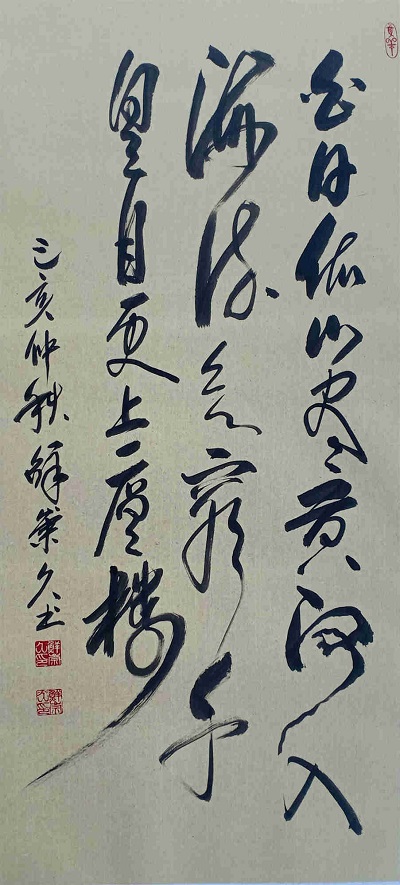 白日依山尽黄河入
海流欲窮千
里目更上一層樓
己亥仲秋解業久书